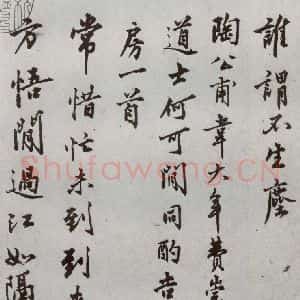 誰謂不生塵
陶公甫韋大年費崇
道士何可閒同酌
房一首
常惜忙未到到
方悟閒過江如隔
Shufawang.CN